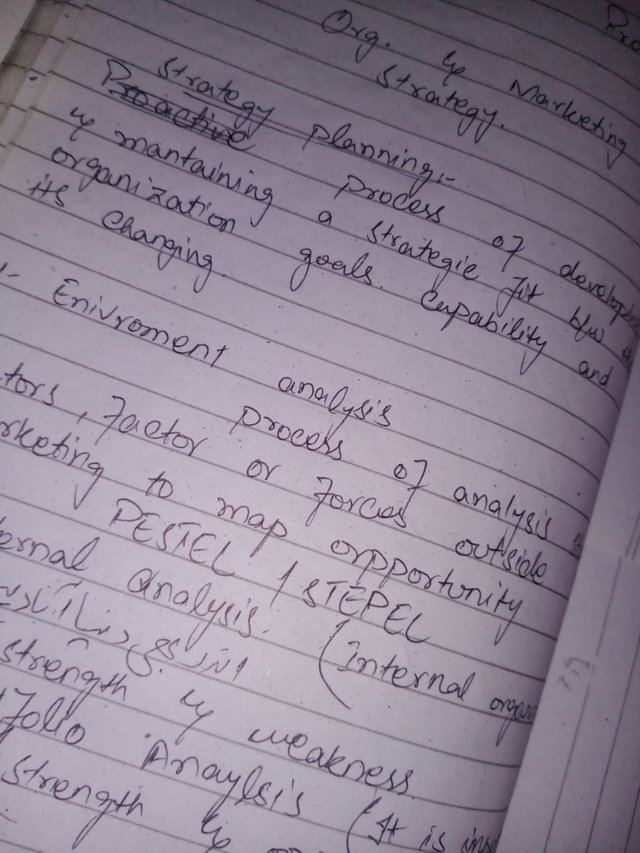 Pro
Org. & Marketing
Strategy.
Strategy planning:-
Proactive process of develop
& mantaining a strategic fit b/w
organization goals. Capability and
its changing
Enivroment analysis
process of analysis
tors, factor or forces outside
rketing to map orpportunity
PESTEL / STEPEL
ernal analysis. (Internal organ
strength & weakness
folio Anaylsis (It is
strength &